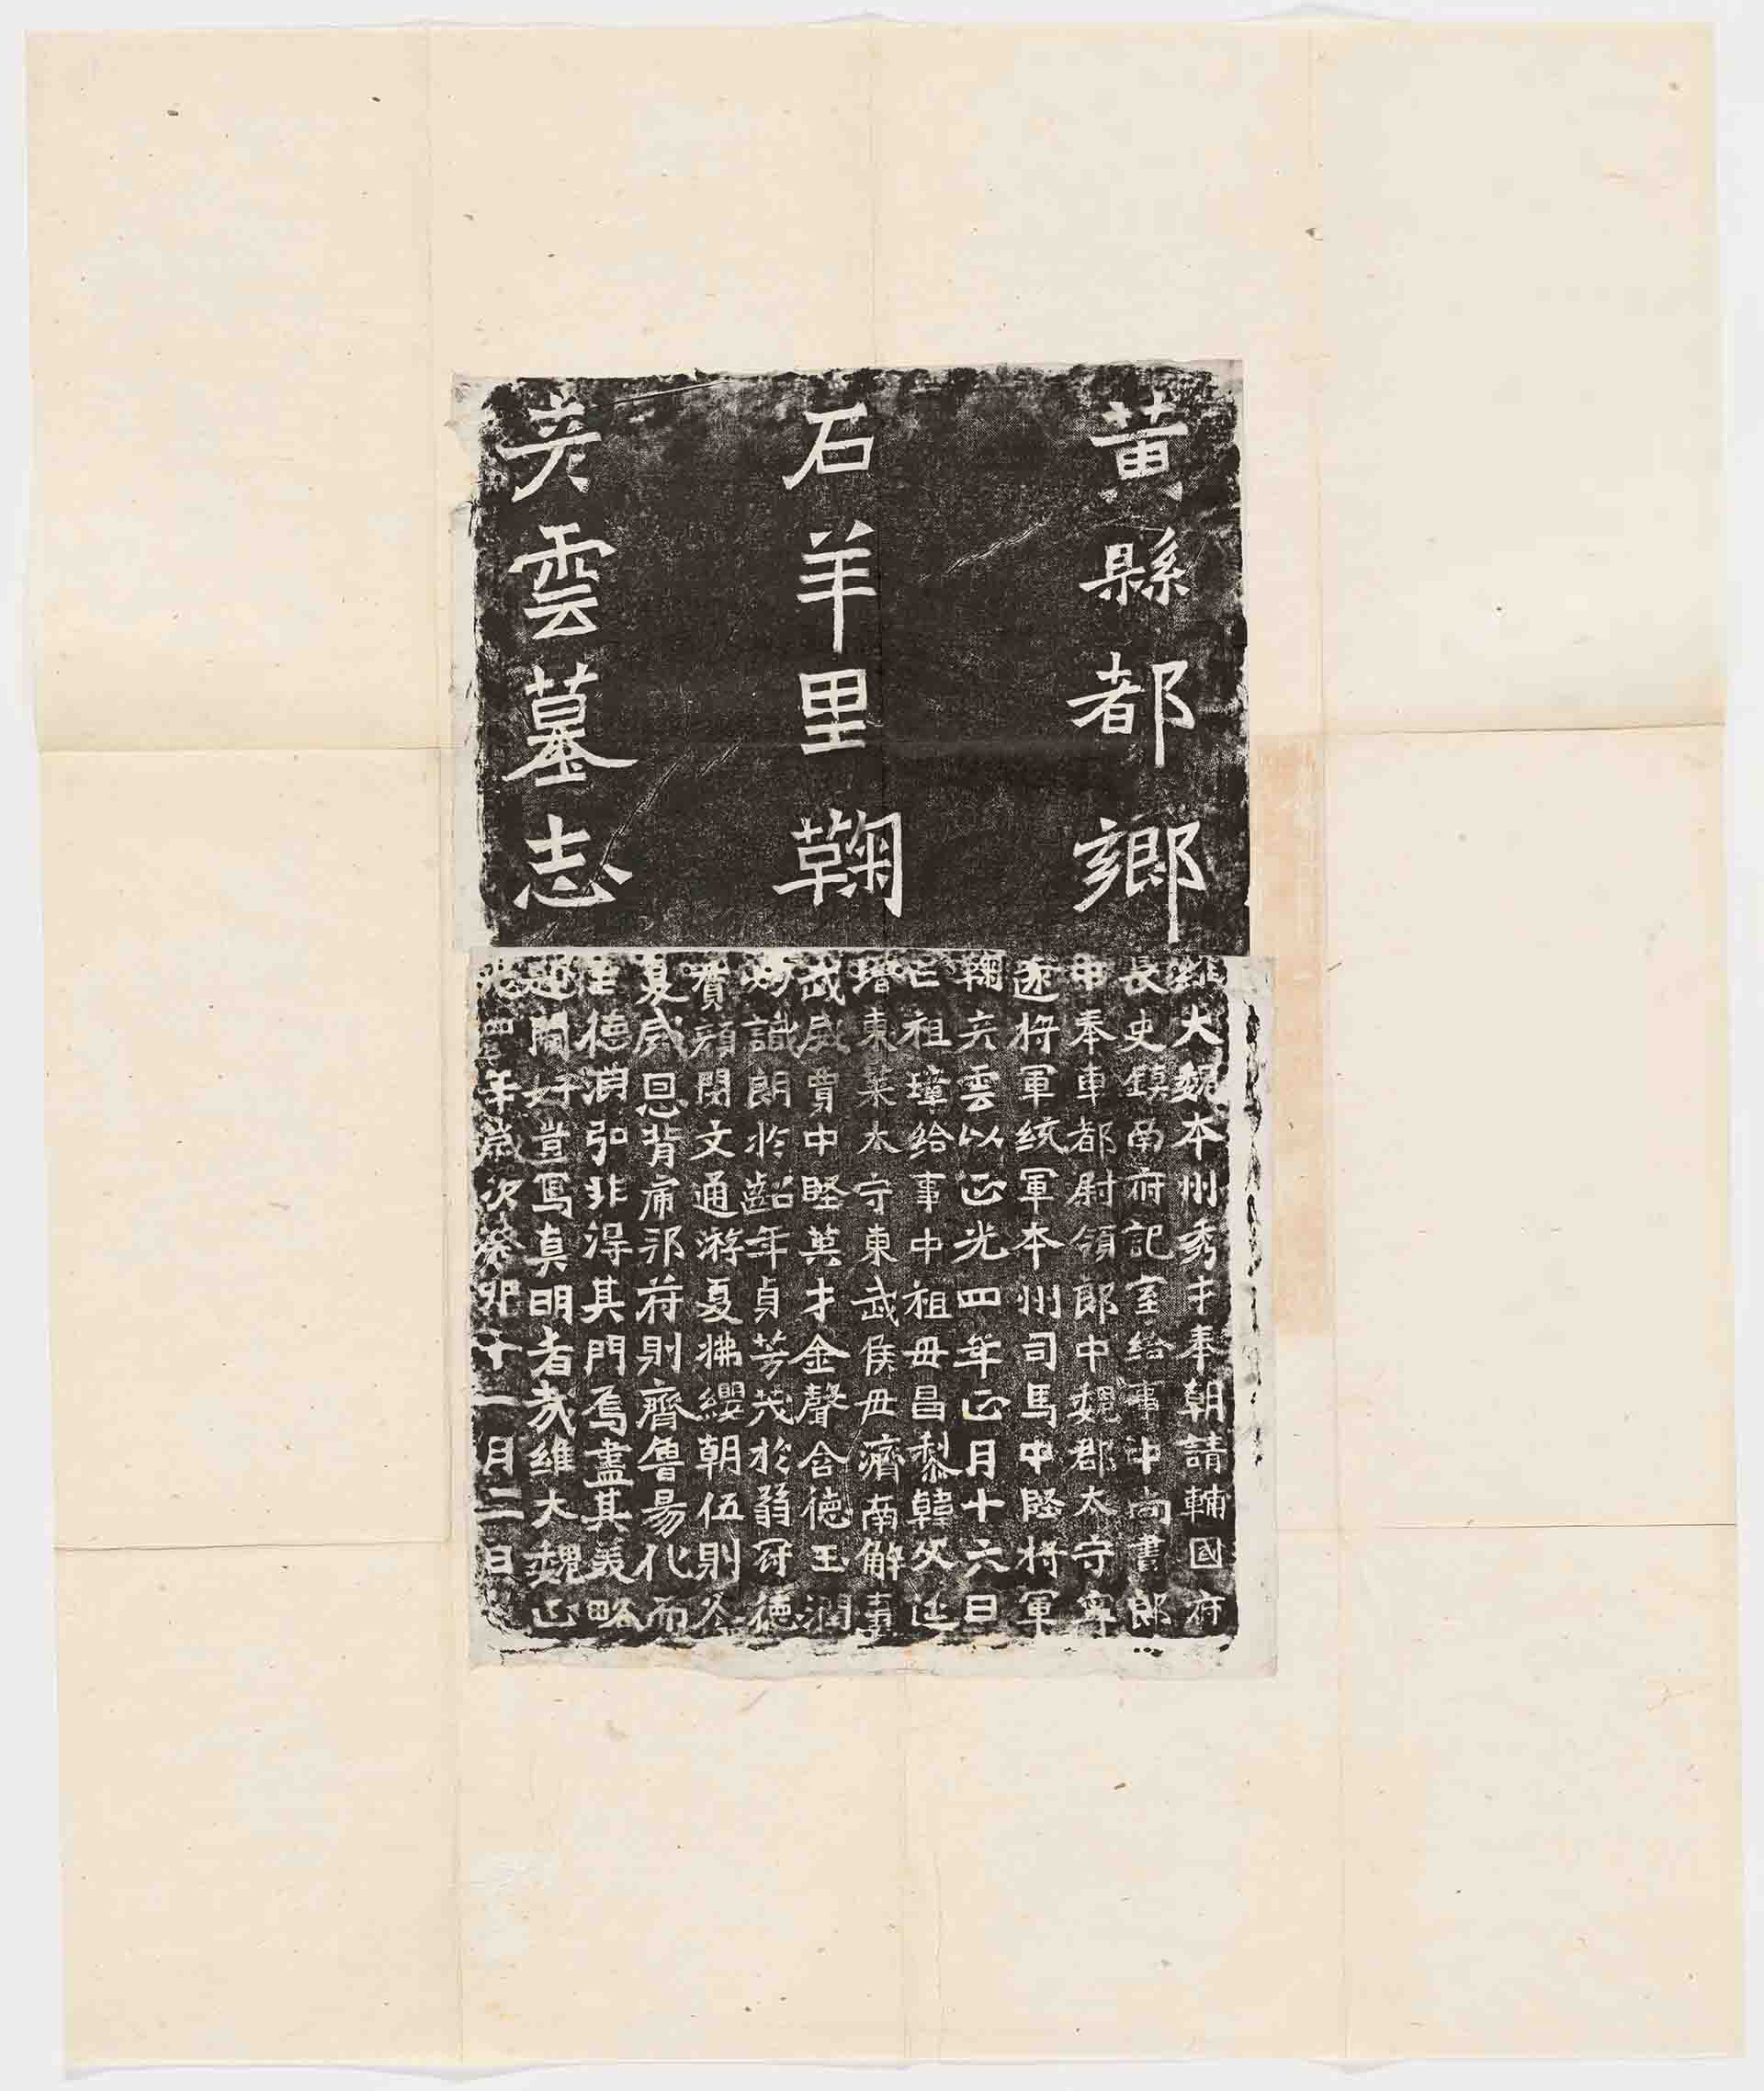 黃縣都鄉
石羊里鞠
彦雲墓志
維大魏本州秀才奉朝請輔國府
長史鎮南府記室給事中尚書郎
中奉車都尉領郎中魏郡太守寧
遠将軍統軍本州司馬中堅将軍
鞠彦雲以正光四年正月十六日
亡祖璋給事中祖毋昌黎韓父延
增東萊太守東武侯毋濟南解妻
武威賈中堅英才金聲含徳玉潤
妙識朗於齠年貞芳茂於弱冠德
賞顔閔文通游夏拂纓朝伍則
夏威恩背虎邪苻則齊魯易化而
至德淵弘非淂其門焉盡其美略
題聞好豈寫真明者㦲維大魏正
光四年歲次癸卯十一月二日